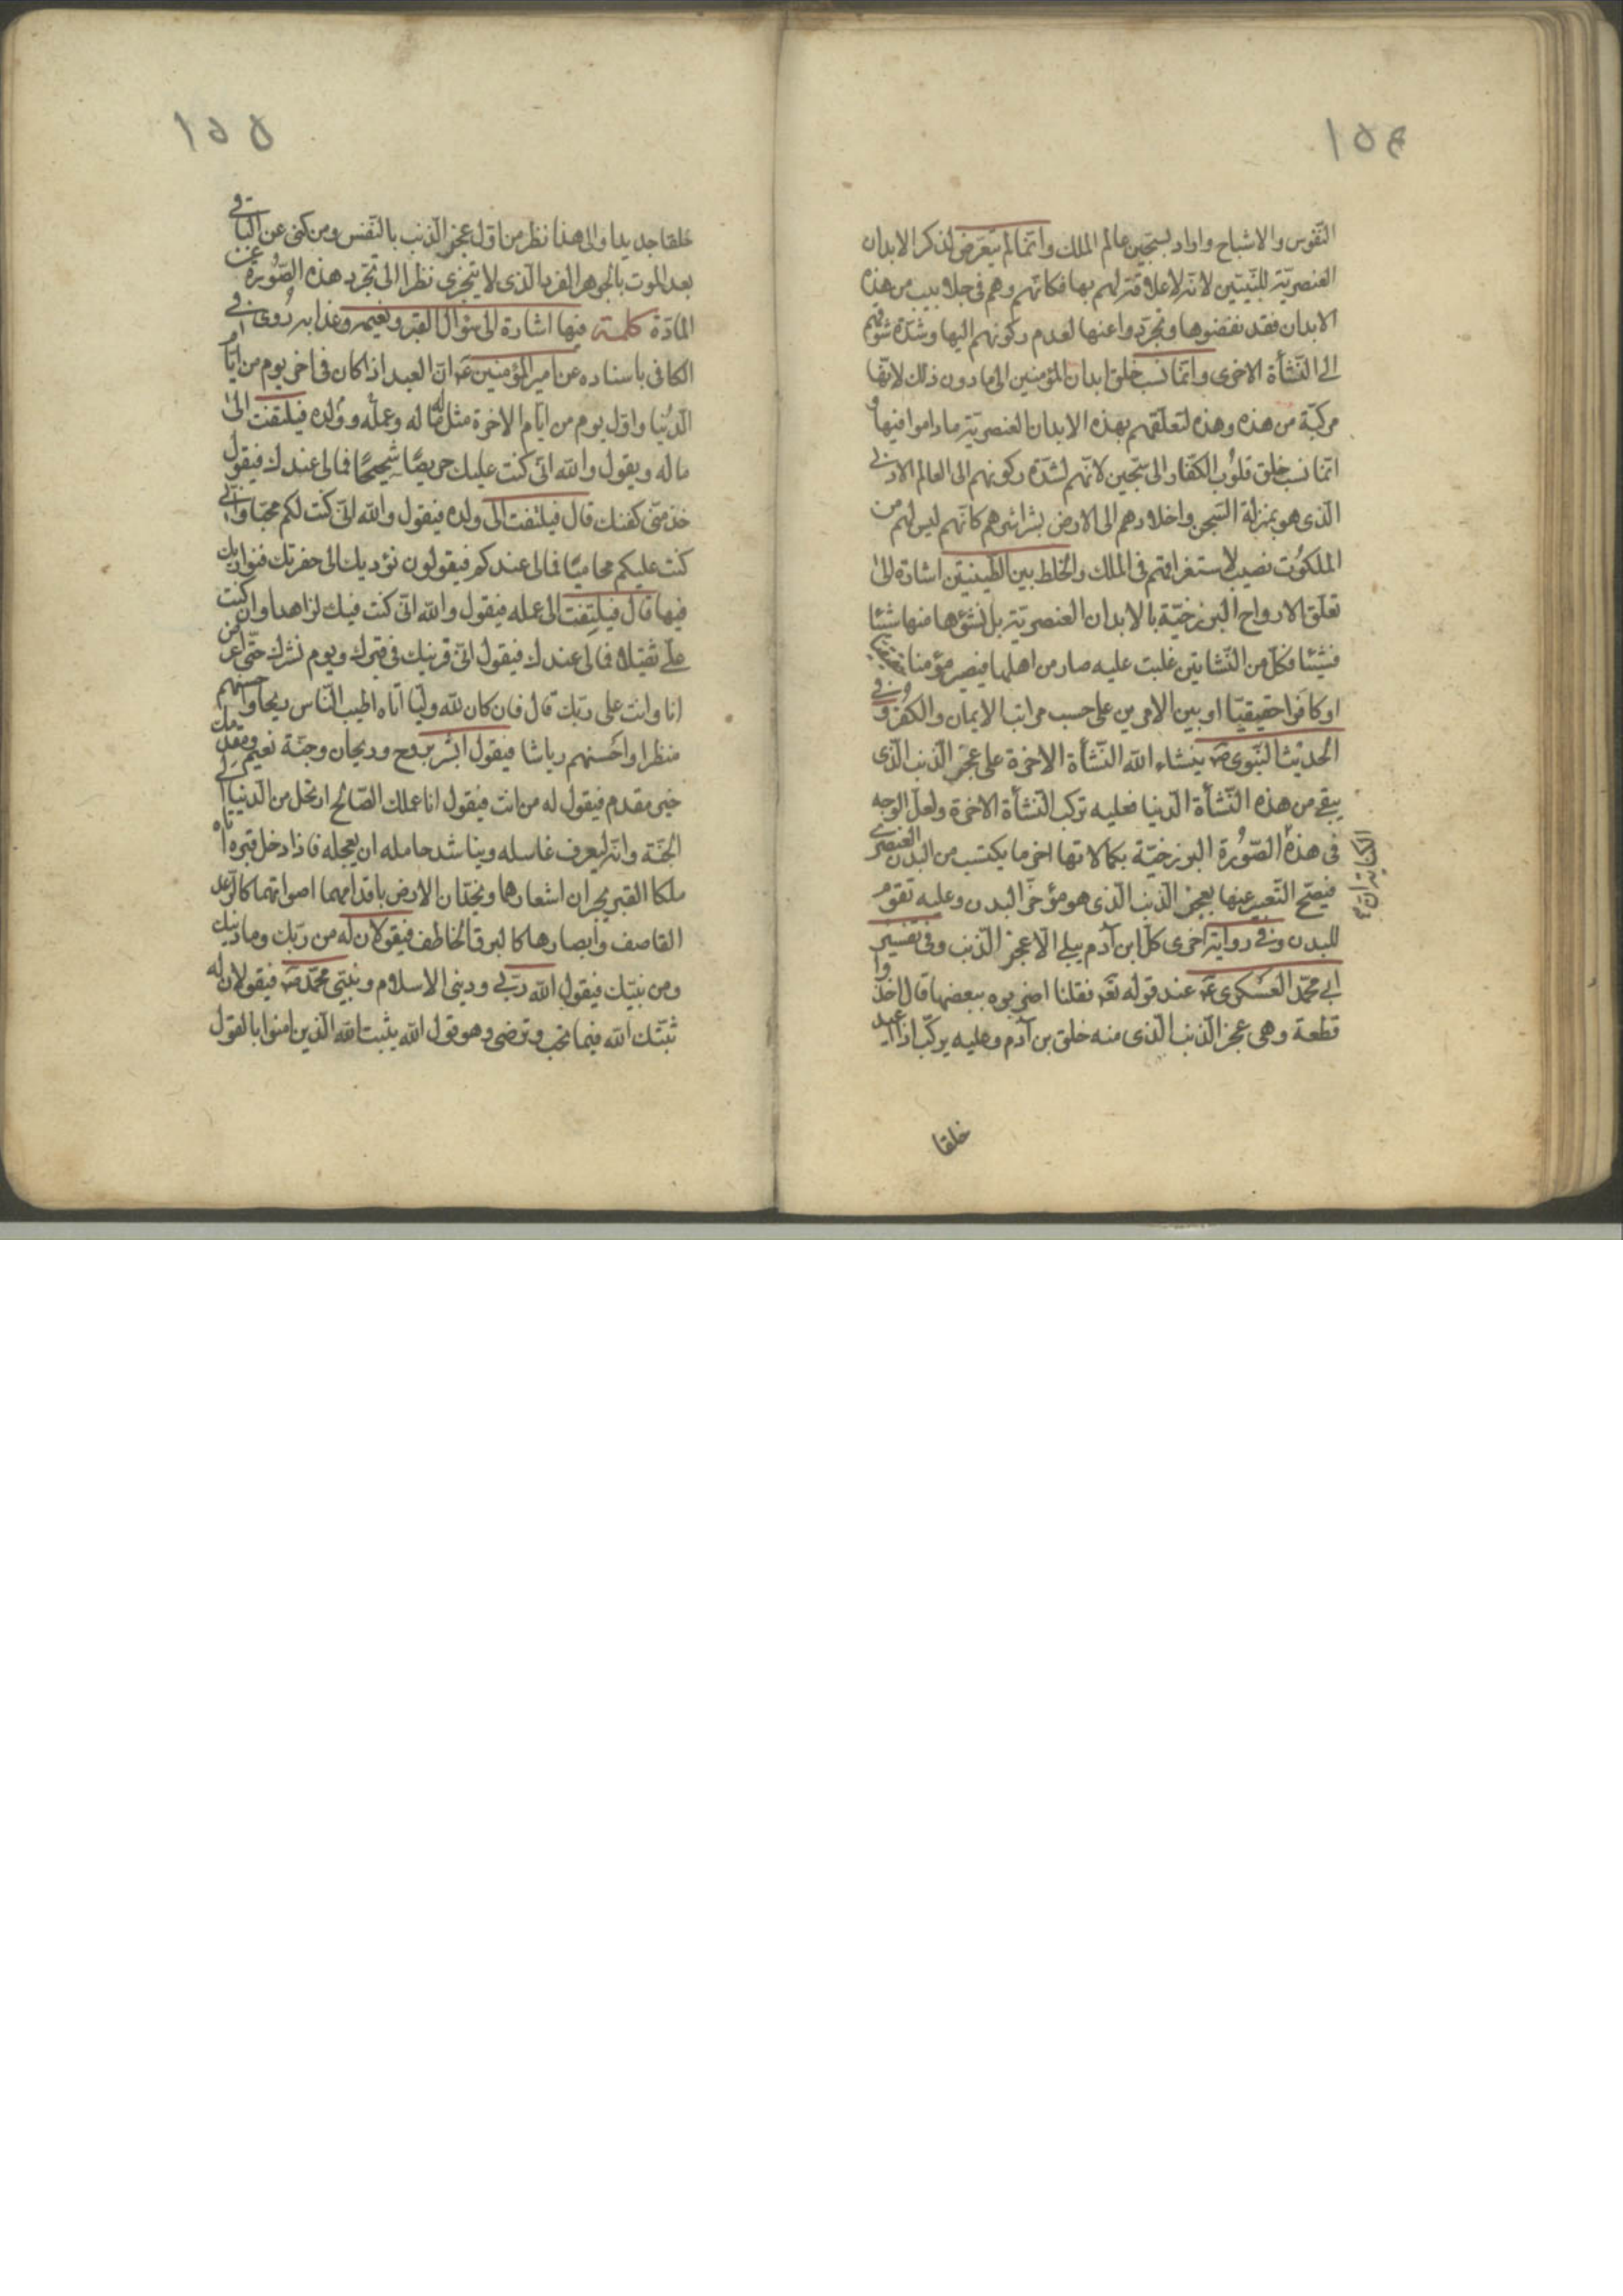 ١٥٤
النّفوس والاشباح واراد بسجّين عالم الملك وانّما لم يتعرّض لذكر الابدان
العنصريّة للنّبيّين لانّه لا علاقة لهم بها فكانّهم وهم فى جلابيب من هذه
الابدان فقد نفضوها وتجرّدوا عنها لعدم ركونهم اليها وشدّة شوقهم
الى النّشأة الاخرى وانّما نسب خلق ابدان المؤمنين الى ما دون ذلك لانّها
مركبّة من هذه وهذه لتعلّقهم بهذه الابدان العنصريّة ما داموا فيها و
انّما نسب خلق قلوب الكفّار الى سجّين لانّهم لشدّة ركونهم الى العالم الادنى
الّذى هو بمنزلة السّجن واخلادهم الى الارض بشراشرهم كانّهم ليس لهم من
الملكوت نصيب لاستغراقهم فى الملك والخلط بين الطّينتين اشارة الى
تعلّق الارواح البرزخيّة بالابدان العنصريّة بل نشؤها منها شيئا
فشيئا فكلّ من النّشاتين غلبت عليه صار من اهلها فيصير مؤمنا حقيقيّا
او كافرا حقيقيّا او بين الامرين على حسب مراتب الايمان والكفر وفى
الحديث النّبوى ص ينشاء اللّه النّشأة الاخرة على عجز الذّنب الّذى
يبقى من هذه النّشأة الدّنيا فعليه تركب النّشأة الاخرة ولعلّ الوجه
فى هذه الصّورة البرزخيّة بكمالاتها اخر ما يكتسب من البدن العنصرى
فيصحّ التّعبير عنها بعجز الذّنب الّذى هو مؤخّر البدن وعليه تقوّم
للبدن وفى رواية اخرى كلّ ابن آدم يبلى الّا عجز الذّنب وفى تفسير
ابى محمّد العسكرى ع عند قوله تع فقلنا اضربوه ببعضها قال اخذوا
قطعة وهى عجز الذّنب الّذى منه خلق بن آدم وعليه يركّب اذا اعيد
خلقا
١٥٥
خلقا جديدا والى هذا نظر من اوّل عجز الذّنب بالنّفس ومن كنى عن الباقى
بعد الموت بالجوهر الفرد الّذى لا يتجزى نظرا الى تجرّد هذه الصّورة عن
المادّة كلمة فيها اشارة الى سؤال القبر ونعيمه وعذابه روى فى
الكافى باسناده عن امير المؤمنين ع انّ العبد اذا كان فى اخر يوم من ايّام
الدّنيا واوّل يوم من ايّام الاخرة مثل له ماله وعمله وولده فيلتفت الى
ماله ويقول واللّه انّى كنت عليك حريصًا شحيحًا فمالى عندك فيقول
خذ منّى كفنك قال فيلتفت الى ولده فيقول واللّه انّى كنت لكم محبّا وانّى
كنت عليكم محاميًا فمالى عندكم فيقولون نؤديك الى حفرتك فنواريك
فيها قال فيلتفت الى عمله فيقول واللّه انّى كنت فيك لزاهدا وان كنت
علىّ ثقيلا فمالى عندك فيقول انّى قرينك فى قبرك ويوم نشرك حتّى اعرض
انا وانت على ربّك قال فان كان للّه وليّا اتاه اطيب النّاس ريحا واحسنهم
منظرا واحسنهم رياشا فيقول ابشر بروح وريحان وجنّة نعيم ومقدمك
خير مقدم فيقول له من انت فيقول انا عملك الصّالح ارتحل من الدّنيا الى
الجنّة وانّه ليعرف غاسله ويناشد حامله ان يعجله فاذا دخل قبره اتاه
ملكا القبر يجران اشعارهما ويخدّان الارض باقدامهما اصواتهما كالرّعد
القاصف وابصارهما كالبرق الخاطف فيقولان له من ربّك وما دينك
ومن نبيّك فيقول اللّه ربّى ودينى الاسلام ونبيّى محمّد ص فيقولان له
ثبّتك اللّه فيما تحب وترضى وهو قول اللّه يثبت اللّه الّذين امنوا بالقول